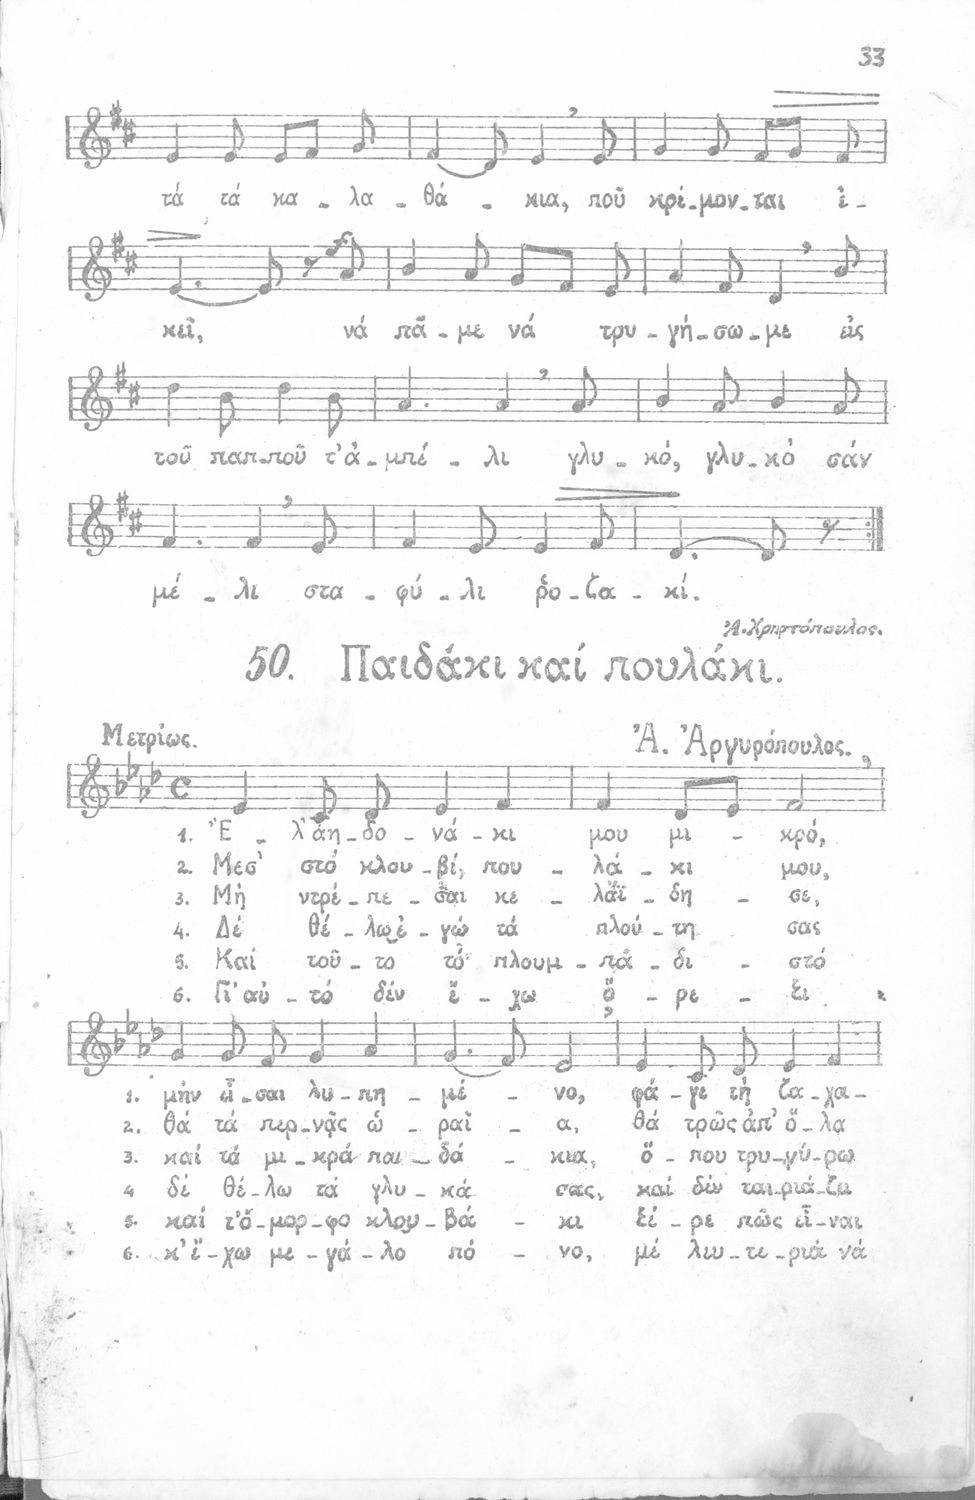 33
τά τά κα - λα - θά - κια, πού κρέ-μον-ται ἐ-
κεῖ, νά πᾶ-με νά τρυ-γή-σω-με εἰς
τοῦ παπ-ποῦ τ' ἀ-μπέ - λι γλυ-κό, γλυ-κό σάν
μέ - λι στα - φύ - λι ῥο-ζα - κί.
Ἀ. Χρηστόπουλος.
50. Παιδάκι καί πουλάκι.
Μετρίως. Ἀ. Ἀργυρόπουλος.
1. Ἔ - λ' ἀη-δο - νά - κι μου μι - κρό,
2. Μεσ' στό κλου-βί, που - λά - κι μου,
3. Μή ντρέ-πε - σαι κε - λάϊ - δη - σε,
4. Δέ θέ-λω ἐ-γώ τά πλού-τη σας
5. Καί τοῦ-το τό πλουμ-πά-δι - στό
6. Γι' αὐ-τό δέν ἔ-χω ὄ - ρε - ξι
1. μήν εἶ-σαι λυ-πη - μέ - νο, φά-γε τή ζα-χα-
2. θά τά περ-νᾷς ὡ - ραῖ - α, θά τρῶς ἀπ' ὅ-λα
3. καί τά μι-κρά παι - δά - κια, ὅ - που τρυ-γύ-ρω
4 δέ θέ-λω τά γλυ - κά σας, καί δέν ται-ριά-ζει
5. καί τ' ὄ-μορ-φο κλου-βά - κι ξέ-ρε πῶς εἶ-ναι
6. κ' ἔ-χω με-γά-λο πό - νο, μέ λευ-τε-ριά νά